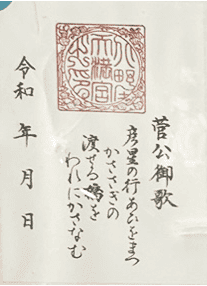 菅公御歌
彦星の行あひをまつ
かささぎの
渡せる橋を
われにかさなむ
令和 年 月 日